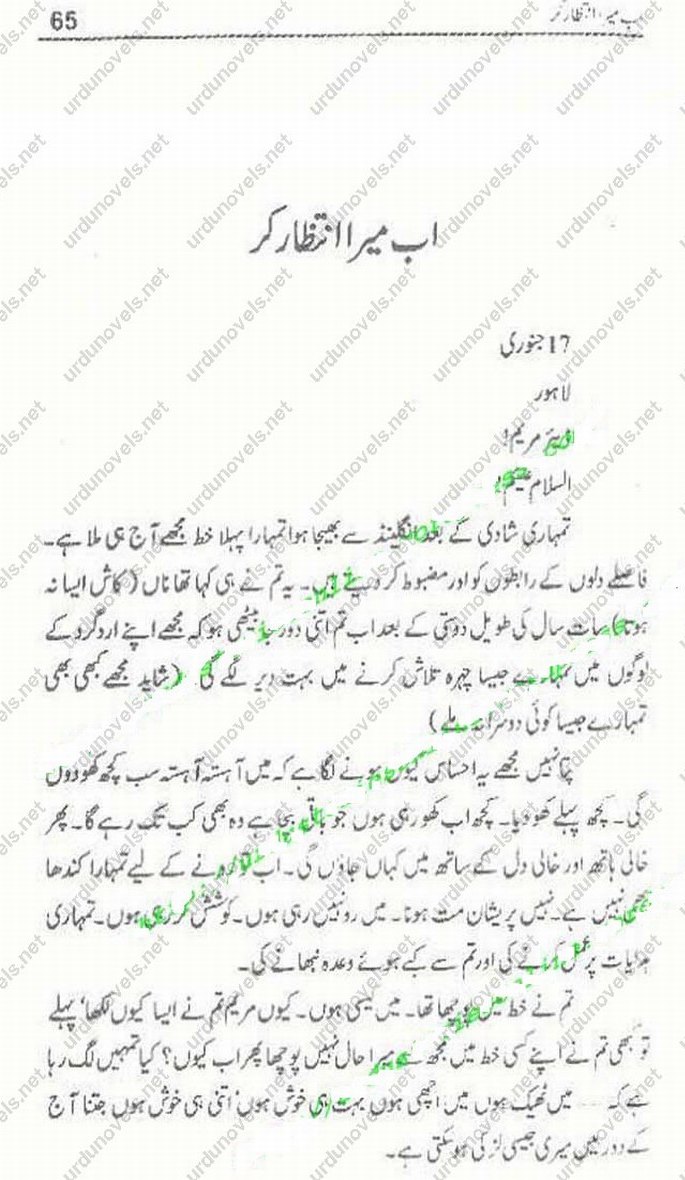 65
میرا انتظار کر
اب میرا انتظار کر
17 جنوری
لاہور
ڈیئر مریم!
السلام علیکم!
تمہاری شادی کے بعد انگلینڈ سے بھیجا ہوا تمہارا پہلا خط مجھے آج ہی ملا ہے۔
فاصلے دلوں کے رابطوں کو اور مضبوط کر دیتے ہیں۔ یہ تم نے ہی کہا تھا ناں (کاش ایسا نہ
ہوتا) سات سال کی طویل دوستی کے بعد اب تم اتنی دور جا بیٹھی ہو کہ مجھے اپنے اردگرد کے
لوگوں میں تمہارے جیسا چہرہ تلاش کرنے میں بہت دیر لگے گی (شاید مجھے کبھی بھی
تمہارے جیسا کوئی دوسرا نہ ملے)
پتا نہیں مجھے یہ احساس کیوں ہونے لگا ہے کہ میں آہستہ آہستہ سب کچھ کھو دوں
گی۔ کچھ پہلے کھو دیا۔ کچھ اب کھو رہی ہوں جو باقی بچا ہے وہ بھی کب تک رہے گا۔ پھر
خالی ہاتھ اور خالی دل کے ساتھ میں کہاں جاؤں گی۔ اب تو رونے کے لیے تمہارا کندھا
بھی نہیں ہے۔ نہیں پریشان مت ہونا۔ میں رو نہیں رہی ہوں۔ کوشش کر رہی ہوں۔ تمہاری
ہدایات پر عمل کرنے کی اور تم سے کیے ہوئے وعدہ نبھانے کی۔
تم نے خط میں پوچھا تھا۔ میں کیسی ہوں۔ کیوں مریم تم نے ایسا کیوں لکھا' پہلے
تو کبھی تم نے اپنے کسی خط میں مجھ سے میرا حال نہیں پوچھا پھر اب کیوں؟ کیا تمہیں لگ رہا
ہے کہ ..... میں ٹھیک ہوں میں اچھی ہوں بہت ہی خوش ہوں' اتنی ہی خوش ہوں جتنا آج
کے دور میں میری جیسی لڑکی ہو سکتی ہے۔
urdunovels.net